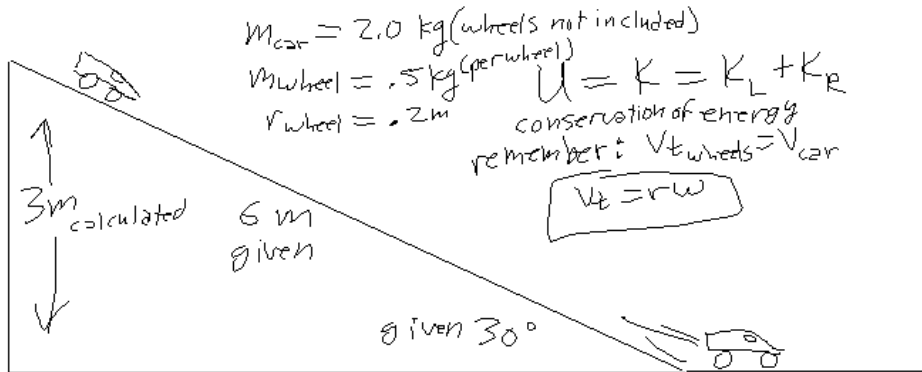 m_car = 2.0 kg (wheels not included)
m_wheel = .5 kg (per wheel)
r_wheel = .2m
U = K = K_L + K_R
conservation of energy
remember: Vt_wheels = V_car
V_t = rω
3m calculated
6 m
given
given 30°